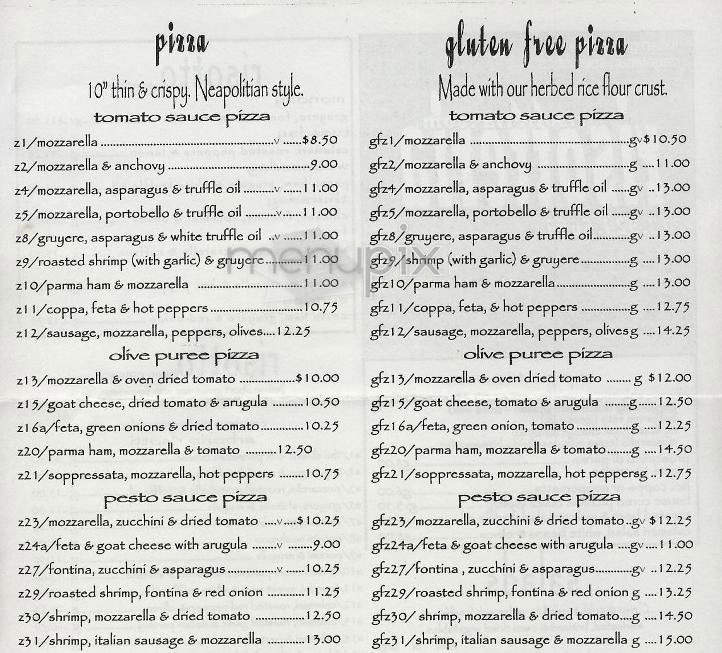 pizza
10" thin & crispy. Neapolitian style.
tomato sauce pizza
z1/mozzarella ........ v ......$8.50
z2/mozzarella & anchovy ........ 9.00
z4/mozzarella, asparagus & truffle oil .......... v ......11.00
z5/mozzarella, portobello & truffle oil ......... v ......11.00
z8/gruyere, asparagus & white truffle oil ..v ......11.00
z9/roasted shrimp (with garlic) & gruyere..........11.00
z10/parma ham & mozzarella ........ 11.00
z11/coppa, feta & hot peppers ........ 10.75
z12/sausage, mozzarella, peppers, olives....12.25
olive puree pizza
z13/mozzarella & oven dried tomato ........$10.00
z15/goat cheese, dried tomato & arugula .........10.50
z16a/feta, green onions & dried tomato............10.25
z20/parma ham, mozzarella & tomato .........12.50
z21/soppressata, mozzarella, hot peppers .......10.75
pesto sauce pizza
z23/mozzarella, zucchini & dried tomato ....v....$10.25
z24a/feta & goat cheese with arugula ........v ........9.00
z27/fontina, zucchini & asparagus ........v ......10.25
z29/roasted shrimp, fontina & red onion ...........11.25
z30/shrimp, mozzarella & dried tomato ........12.50
z31/shrimp, italian sausage & mozzarella ...........13.00
gluten free pizza
Made with our herbed rice flour crust.
tomato sauce pizza
gfz1/mozzarella ........gv$10.50
gfz2/mozzarella & anchovy ........g ....11.00
gfz4/mozzarella, asparagus & truffle oil ......gv ..13.00
gfz5/mozzarella, portobello & truffle oil ......gv ..13.00
gfz8/gruyere, asparagus & truffle oil...........gv ..13.00
gfz9/shrimp (with garlic) & gruyere............g ....13.00
gfz10/parma ham & mozzarella........g ....13.00
gfz11/coppa, feta, & hot peppers ............g ....12.75
gfz12/sausage, mozzarella, peppers, olives g ....14.25
olive puree pizza
gfz13/mozzarella & oven dried tomato ....... g $12.00
gfz15/goat cheese, tomato & arugula .......g......12.50
gfz16a/feta, green onion, tomato ........g ....12.25
gfz20/parma ham, mozzarella & tomato.......g ....14.50
gfz21/soppressata, mozzarella, hot peppersg ..12.75
pesto sauce pizza
gfz23/mozzarella, zucchini & dried tomato..gv $12.25
gfz24a/feta & goat cheese with arugula ....gv....11.00
gfz27/fontina , zucchini & asparagus..........gv ..12.25
gfz29/roasted shrimp, fontina & red onion g ....13.25
gfz30/ shrimp, mozzarella & dried tomato....g ....14.50
gfz31/shrimp, italian sausage & mozzarella g ....15.00
menupix